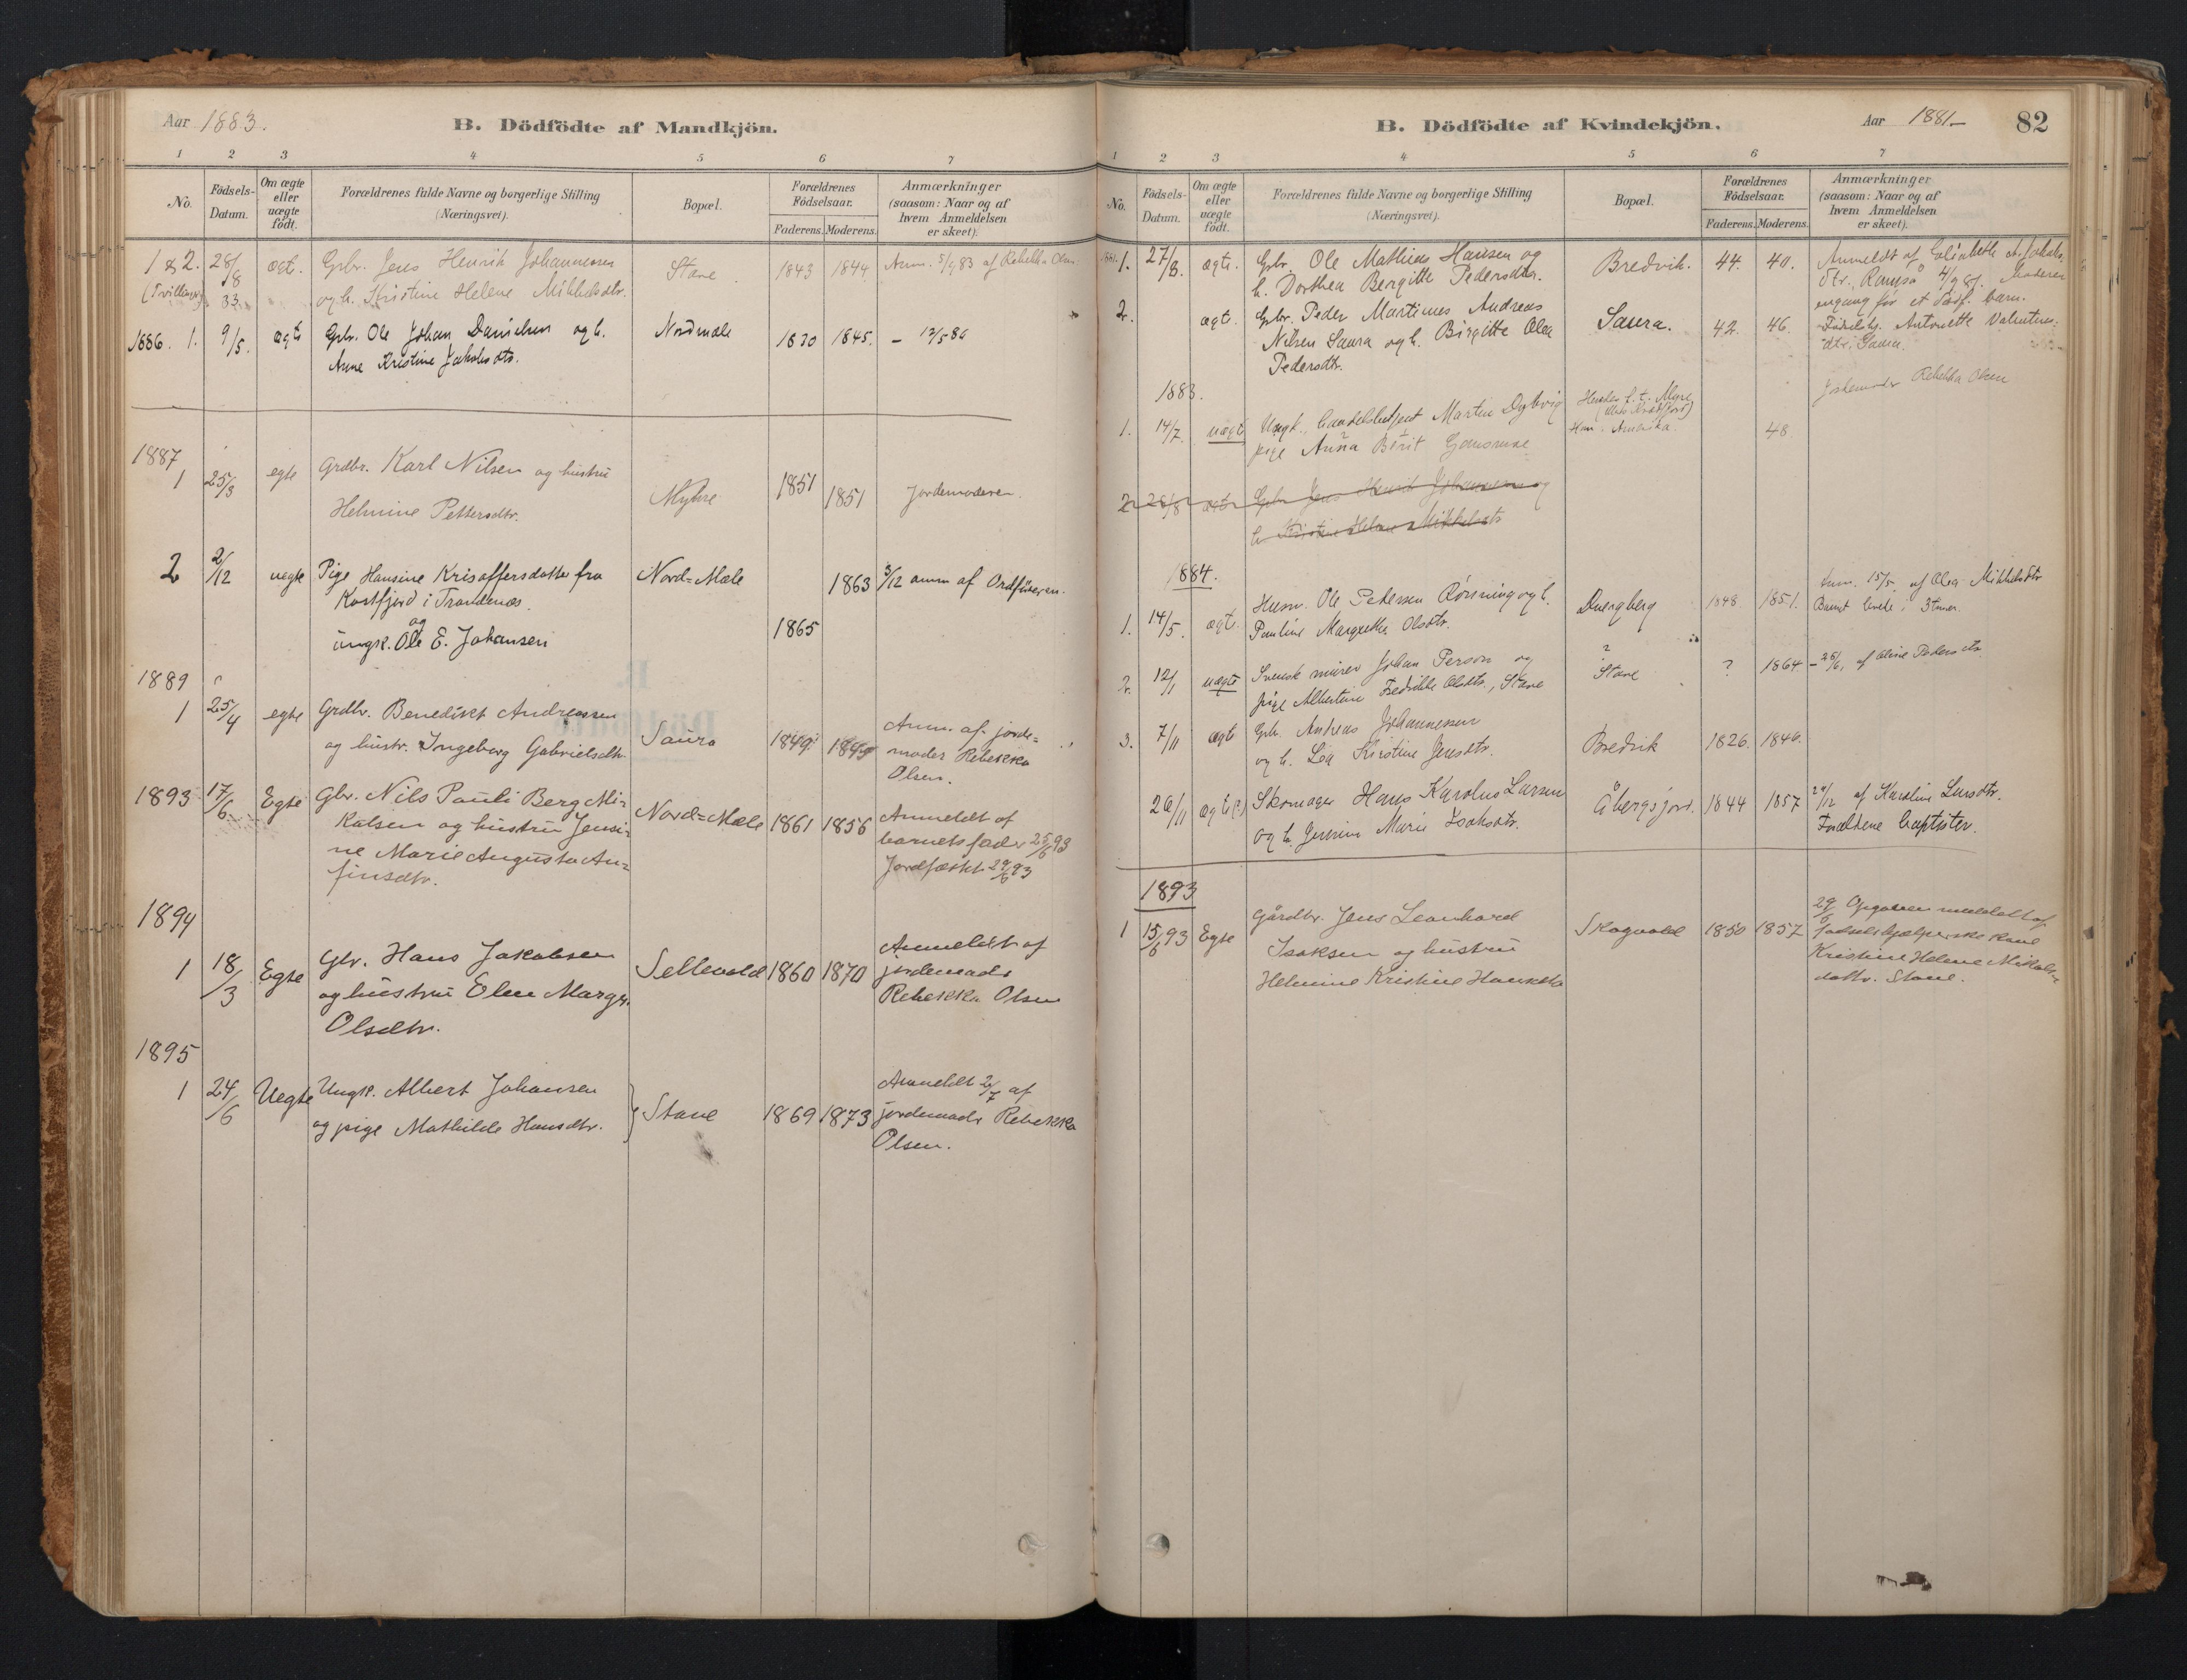 Aar 1883.
B. Dödfödte af Mandkjön.
1 2 3 4 5 6 7
No.
Födsels-Datum.
Om ægte eller uægte födt.
Forældrenes fulde Navne og borgerlige Stilling (Næringsvei).
Bopæl.
Forældrenes Födselsaar.
Faderens. Moderens.
Anmærkninger (saasom: Naar og af hvem Anmeldelsen er skeet).
1 & 2. 28/8 ægt. Gbr. Jens Henrik Johannessen Stave 1843 1844 Anm. 5/9 83 af Rebekka Olsen
(Tvillinger) 83. og h. Kristine Helene Mikkelsdtr.
1886. 1. 9/5. ægte Gbr. Ole Johan Danielsen og h. Nordmæle 1830 1845. – 12/5 86
Anne Kristine Jakobsdtr.
1887
1 25/3 egte Grdbr. Karl Nilsen og hustru Myhre 1851 1851 Jordemoderen.
Helmine Pettersdtr.
2 2/12 uegte Pige Hansine Krisoffersdatter fra Nord=Mæle 1863 3/12 anm af Ordföreren.
Kastfjord i Trondenæs.
og
ungk. Ole E. Johansen 1865
1889
1 25/4 egte Grdbr. Benedikt Andreassen Saura 1849 1849 Anm. af jorde=
og hustr. Ingeborg Gabrielsdtr. moder Rebekka
Olsen.
1893 17/6. Egte Gbr. Nils Pauli Berg Mi= Nord=Mæle 1861 1856 Anmeldt af
kalsen og hustru Jensi= barnets fader 25/6 93
ne Marie Augusta An= Jordfæstet 29/6 93
finsdtr.
1894
1 18/3 Egte Gbr. Hans Jakobsen Sellevold 1860 1870 Anmeldt af
og hustru Elen Margr. jordemoder
Olsdtr. Rebekka Olsen
1895
1 24/6 Uegte Ungk. Albert Johansen Stave 1869 1873 Anmeldt 2/7 af
og pige Mathilde Hansdtr. jordemoder Rebekka
Olsen.
B. Dödfödte af Kvindekjön.
Aar 1881– 82
1 2 3 4 5 6 7
No.
Födsels-Datum.
Om ægte eller uægte födt.
Forældrenes fulde Navne og borgerlige Stilling (Næringsvei).
Bopæl.
Forældrenes Födselsaar.
Faderens. Moderens.
Anmærkninger (saasom: Naar og af hvem Anmeldelsen er skeet).
1881. 1. 27/8. ægte. Gbr. Ole Mathias Hansen og Bredvik. 44. 40. Anmeldt af Elisabeth Jakobs
h. Dorthea Bergitte Pedersdtr. dtr., Ramså 4/9 81. Moderen
engang før et dødf. barn.
2. ægte. Gbr. Peder Martinus Andreas Saura. 42. 46. Antonette Valentins=
Nilsen Saura og h. Birgitte Olea dtr. Saura.
Pedersdtr.
1883.
1. 14/7. uægte Ungk. handelsbetjent Martin Dybvig f. t. Myre 48. Jordemoder Rebekka Olsen
pige Anna Berit Hun. Amerika.
2. 28/8 ægte Gbr. Jens Henrik Johannessen og
h. Kristine Helene Mikkelsdtr.
1884.
1. 14/5. ægte. Husm. Ole Pedersen Rönning og h. Dvergberg 1848. 1851. Anm. 15/5. af Olea Mikkelsdtr
Pauline Margrethe Olsdtr. Barnet levede i 3 timer.
2. 12/1 uægte Svensk murer Johan Person og ? Stave ? 1864 – 25/6, af Pedersdtr.
pige Albertine Fredrikke Olsdtr., Stave
3. 7/11 ægte Gbr. Andreas Johannessen Bredvik 1826. 1846.
og h. Lea Kirstine Jensdtr.
26/11 ægte(?) Skomager Hans Karolus Larsen Åbergsjord. 1844 1857 24/12 af Karoline Larsdtr.
og h. Marie Isaksdtr. Forældrene baptister.
1893
1 15/6 93 Egte Gårdbr. Jens Leonhard Skogvold 1850 1857 29/6 Opgaven meddelt af
Isaksen og hustru fødselshjælperske kone
Helmine Kristine Kristine Helene Mikals=
datter. Stave.